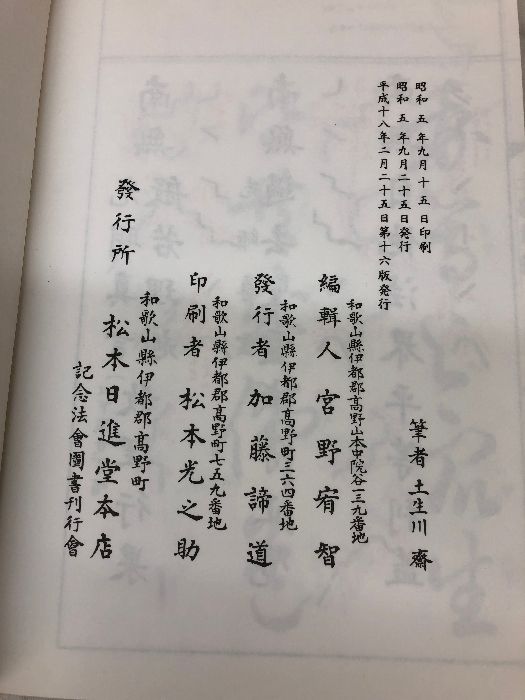 昭和五年九月十五日印刷
昭和五年九月二十五日発行
平成十八年二月二十五日第十六版発行
筆者土生川齋
和歌山縣伊都郡高野山本中院谷一三九番地
編輯人宮野宥智
和歌山縣伊都郡高野町三六四番地
發行者加藤諦道
和歌山縣伊都郡高野町七五九番地
印刷者松本光之助
和歌山縣伊都郡高野町
發行所松本日進堂本店
記念法會圖書刊行會